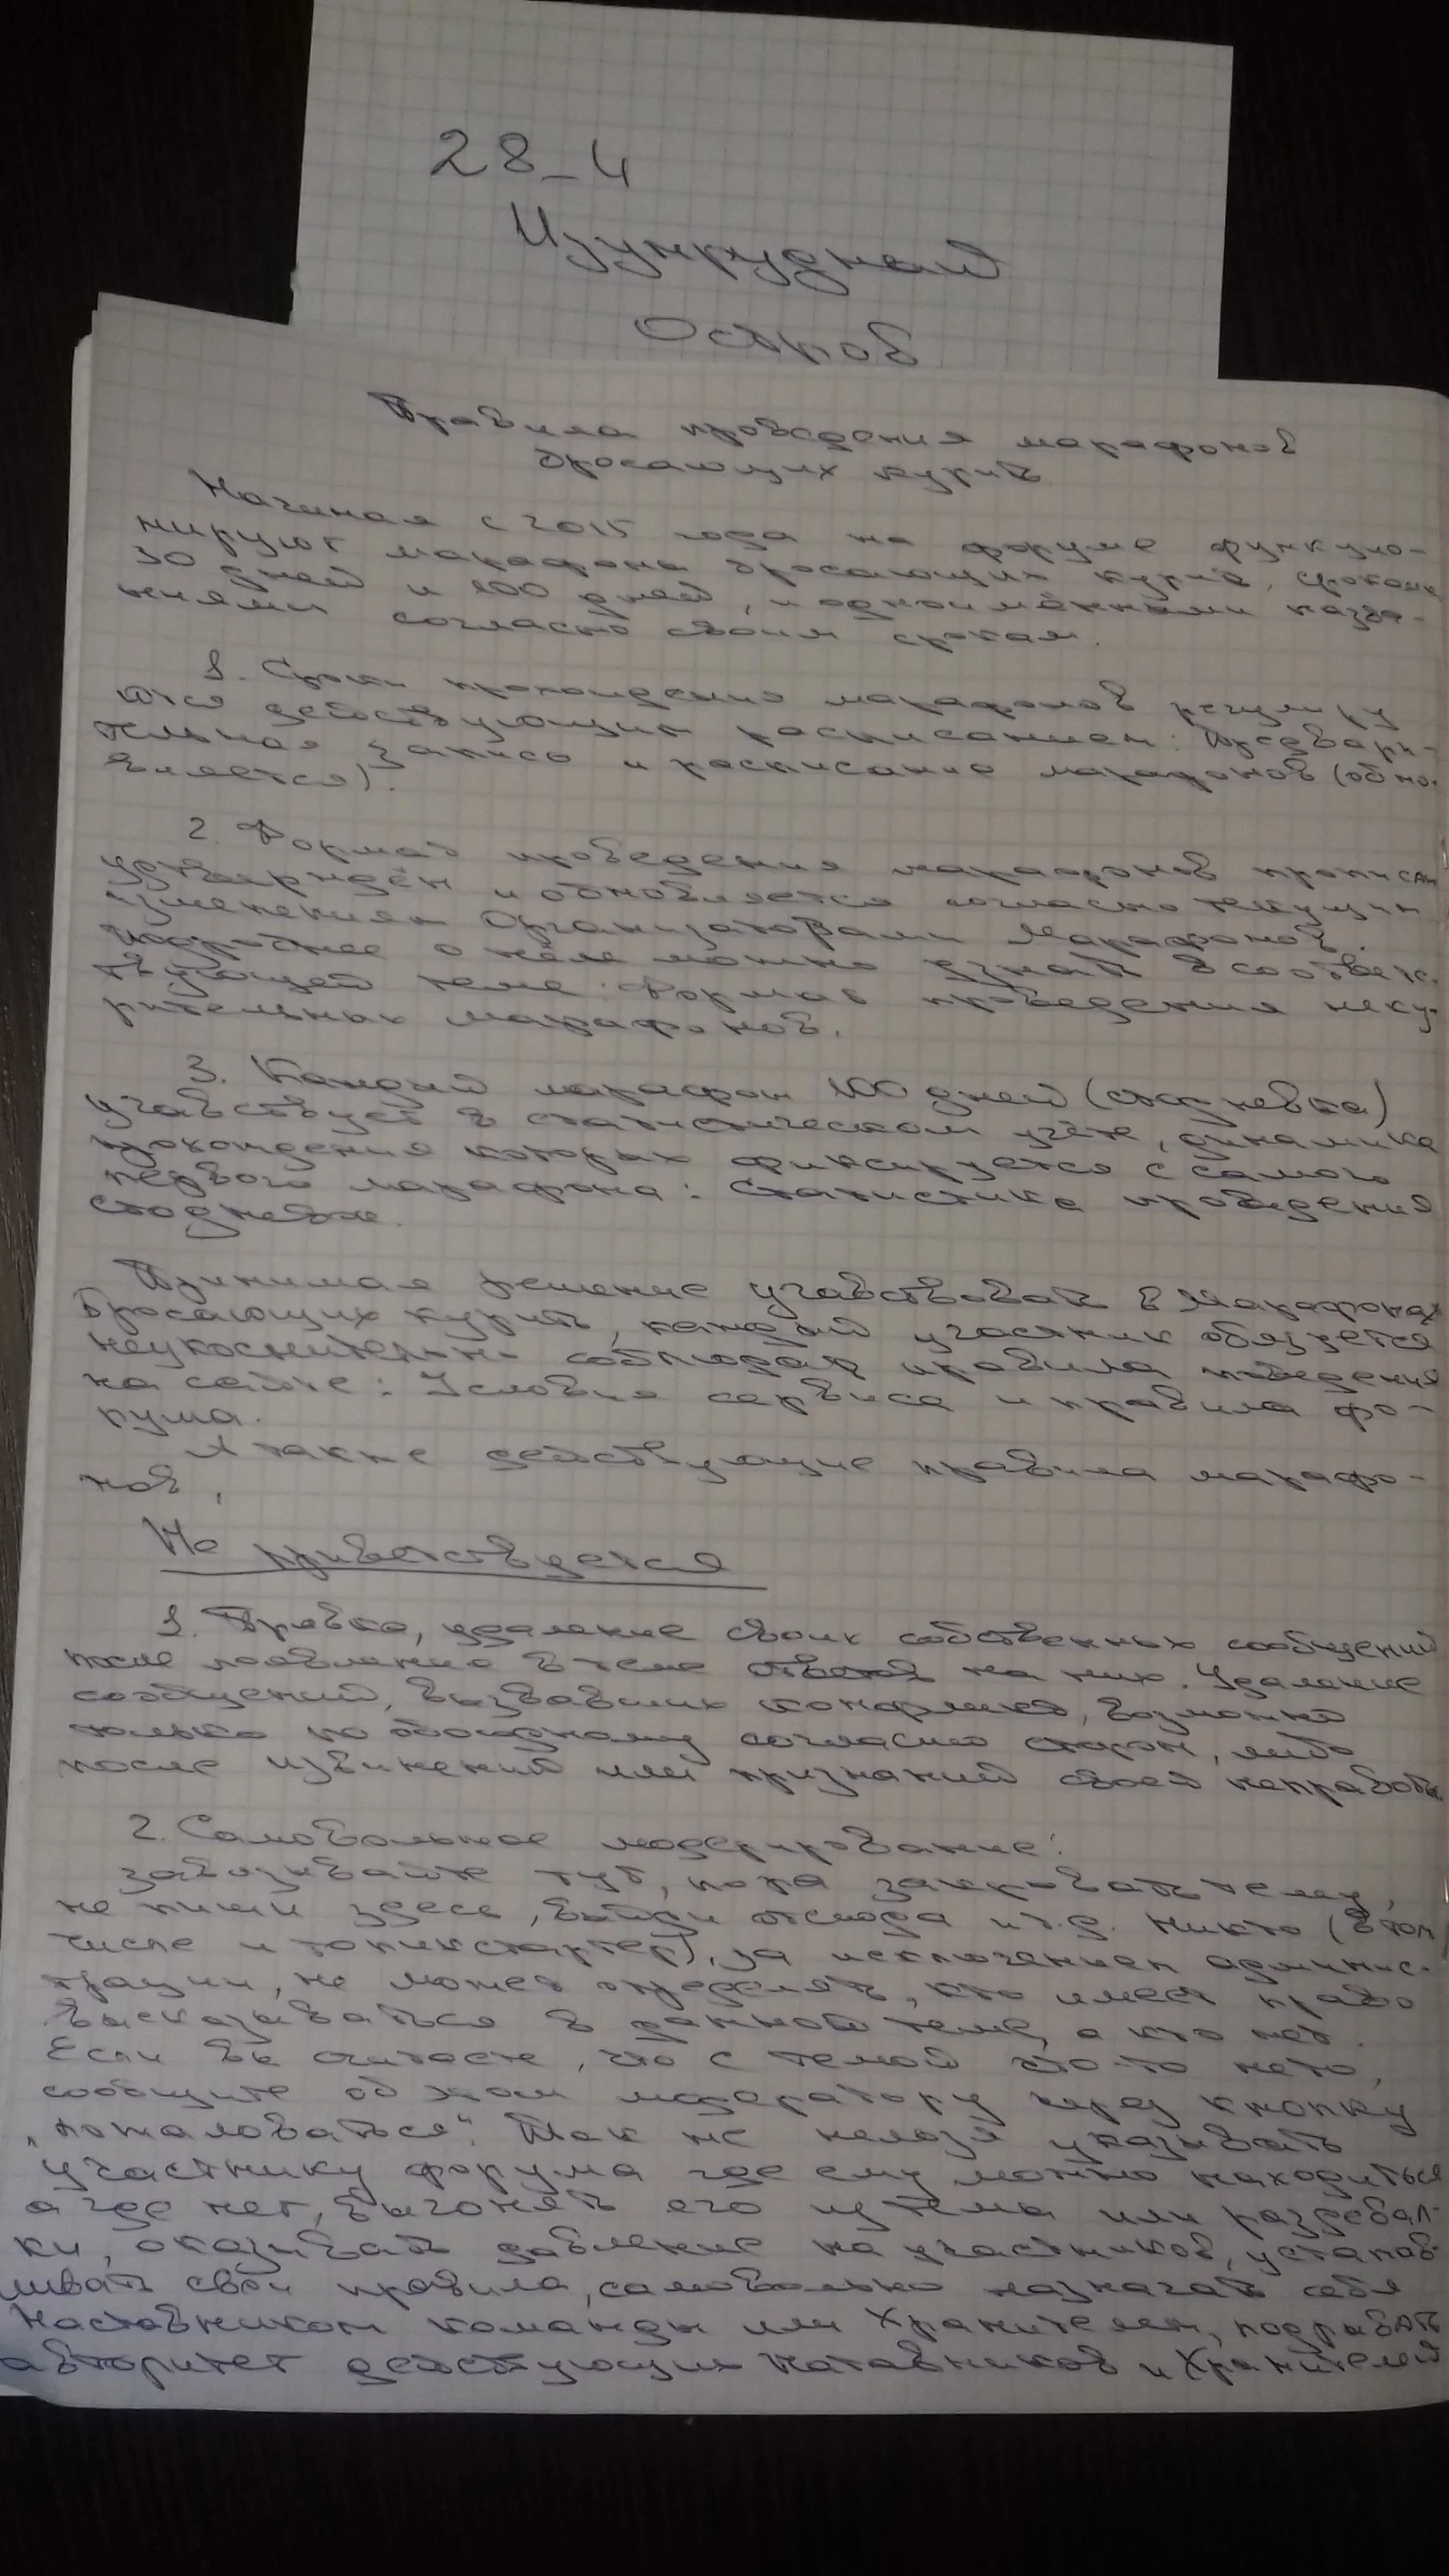 28_4
Изумрудный
Остров
Правила проведения марафонов
бросающих курить
Начиная с 2015 года на форуме функцио-
нируют марафоны бросающих курить, сроком
30 дней и 100 дней, и одноимёнными назва-
ниями согласно своим срокам.
1. Сроки прохождения марафонов регулиру
ются действующим расписанием: Предвари-
тельная запись и расписание марафонов (обно-
вляется).
2. Формат проведения марафонов прописан
утверждён и обновляется согласно текущим
изменениям Организаторами Марафонов.
Подробнее о нём можно узнать в соответс-
твующей теме: Формат проведения неку-
рительных марафонов.
3. Каждый марафон 100 дней (стодневка)
участвует в статистическом учёте, динамика
прохождения которых фиксируется с самого
первого марафона: Статистика проведения
стодневок.
Принимая решение участвовать в Марафонах
Бросающих курить, каждый участник обязуется
неукоснительно соблюдать правила поведения
на сайте: Условия сервиса и правила фо-
рума.
А также действующие правила марафо-
нов,
Не приветствуется
1. Правка, удаление своих собственных сообщений
после появления в теме ответов на них. Удаление
сообщений, вызвавших конфликт, возможно
только по обоюдному согласию сторон, либо
после извинений или признаний своей неправоты
2. Самовольное модерирование:
завязывайте тут, пора закрывать тему,
не пиши здесь, выйди отсюда и т.д. Никто (в том
числе и топикстартер), за исключением админис-
трации, не может определять, кто имеет право
высказываться в данной теме, а кто нет.
Если вы считаете, что с темой что-то не то,
сообщите об этом модератору через кнопку
"пожаловаться". Так же нельзя указывать
участнику форума где ему можно находиться
а где нет, выгонять его из темы или раздевал-
ки, оказывать давление на участников, устанав-
ливать свои правила, самовольно назначать себя
Наставником команды или Хранителем, подрывать
авторитет действующих Натавников и Хранителей